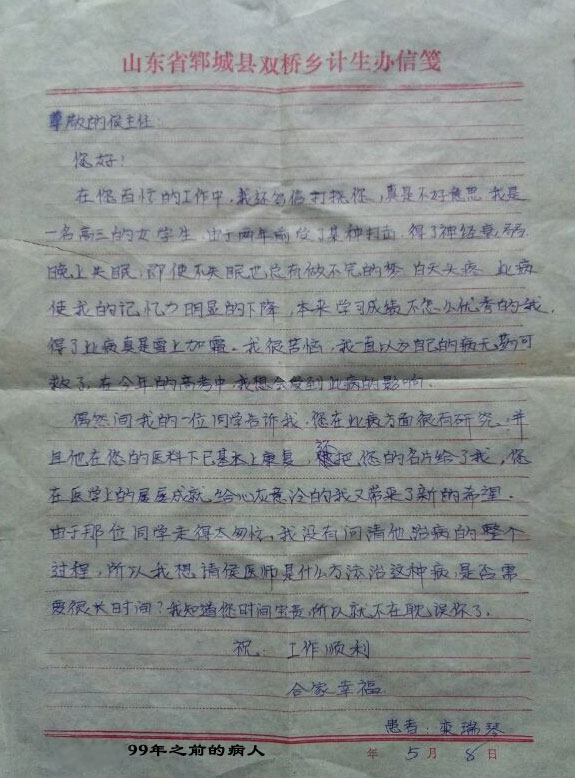 山东省郓城县双桥乡计生办信笺
尊敬的侯主任：
您好！
在您百忙的工作中，我还写信打扰您，真是不好意思 我是
一名高三的女学生，由于两年前受了某种打击，得了神经衰弱
晚上失眠，即使不失眠也总有做不完的梦 白天头疼 此病
使我的记忆力明显的下降，本来学习成绩不怎么优秀的我，
得了此病真是雪上加霜。我很苦恼，我一直以为自己的病无药可
救了，在今年的高考中我想会受到此病的影响．
偶然间我的一位同学告诉我，您在此病方面很有研究，并
且他在您的医科下已基本上康复，把您的名片给了我，您
在医学上的屡屡成就，给心灰意冷的我又带来了新的希望．
由于那位同学走得太匆忙，我没有问清他治病的整个
过程，所以我想请侯医师是什么方法治这种病，是否需
要很长时间？我知道您时间宝贵，所以就不在耽误你了．
祝 工作顺利
合家幸福
患者：栾瑞琴
99年之前的病人 年 5 月 8 日